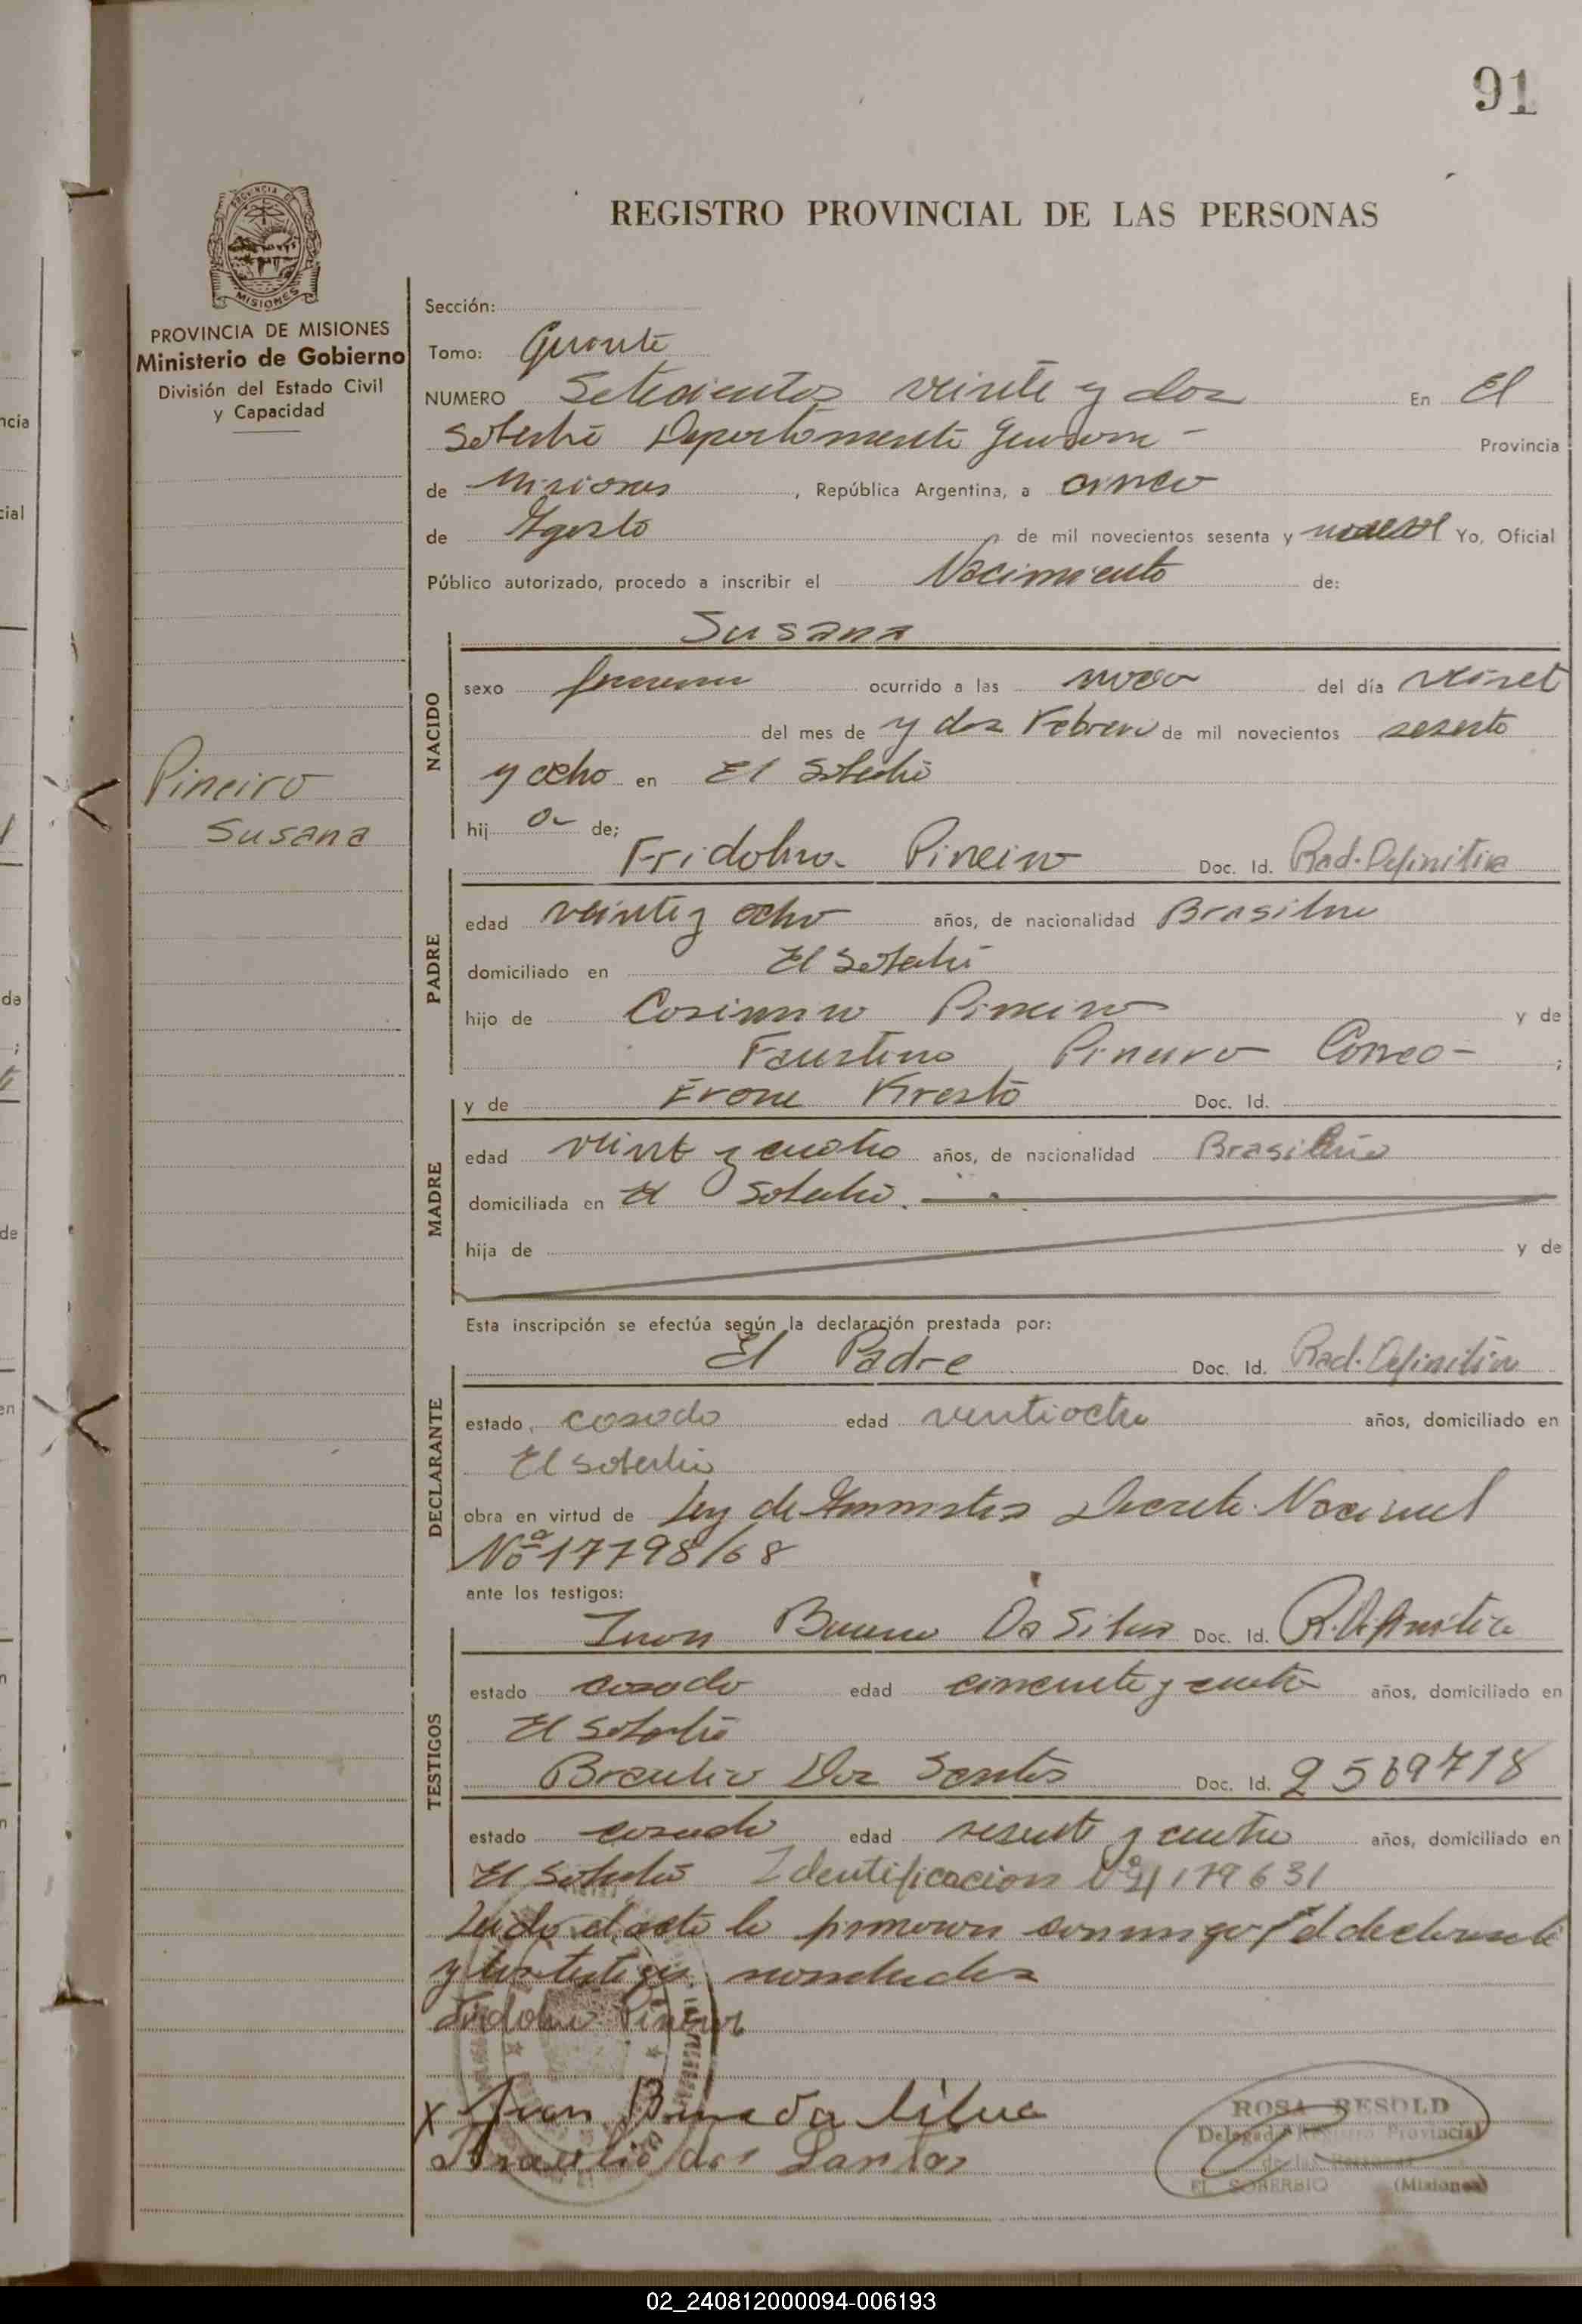 91
PROVINCIA DE MISIONES
REGISTRO PROVINCIAL DE LAS PERSONAS
PROVINCIA DE MISIONES
Ministerio de Gobierno
División del Estado Civil
y Capacidad
Sección:
Tomo:
NUMERO Setecientos veinte y dos En El
Soberbio Departamento Provincia
de Misiones, República Argentina, a cinco
de Agosto de mil novecientos sesenta y Yo, Oficial
Público autorizado, procedo a inscribir el Nacimiento de:
Susana
NACIDO
sexo ocurrido a las del día veinte
del mes de y dos Febrero de mil novecientos sesenta
y ocho en El Soberbio
Pineiro
Susana
hij a de;
Fridolino Pineiro Doc. Id. Rad. Definitiva
PADRE
edad veinte y ocho años, de nacionalidad Brasilera
domiciliado en El Soberbio
hijo de Pineiro y de
Faustina Pineiro ;
y de Doc. Id.
MADRE
edad veinte y cuatro años, de nacionalidad Brasileña
domiciliada en El Soberbio
hija de y de
Esta inscripción se efectúa según la declaración prestada por:
El Padre Doc. Id. Rad. Definitiva
DECLARANTE
estado casado edad ventiocho años, domiciliado en
El Soberbio
obra en virtud de Ley de Amnistia Decreto Nacional
Nº 17798/68
ante los testigos:
Juan Da Silva Doc. Id. R. Definitiva
TESTIGOS
estado casado edad cincuenta y cuatro años, domiciliado en
El Soberbio
Braulio Dos Santos Doc. Id. 2569718
estado casado edad sesenta y cuatro años, domiciliado en
El Soberbio Identificacion 179631
Leido el acta la firmaron conmigo el declarante
y los testigos nombrados
Fridolino Pineiro
x Juan da Silva
Braulio dos Santos
ROSA BESOLD
Delegada Registro Provincial
de las Personas
EL SOBERBIO (Misiones)
02_240812000094-006193